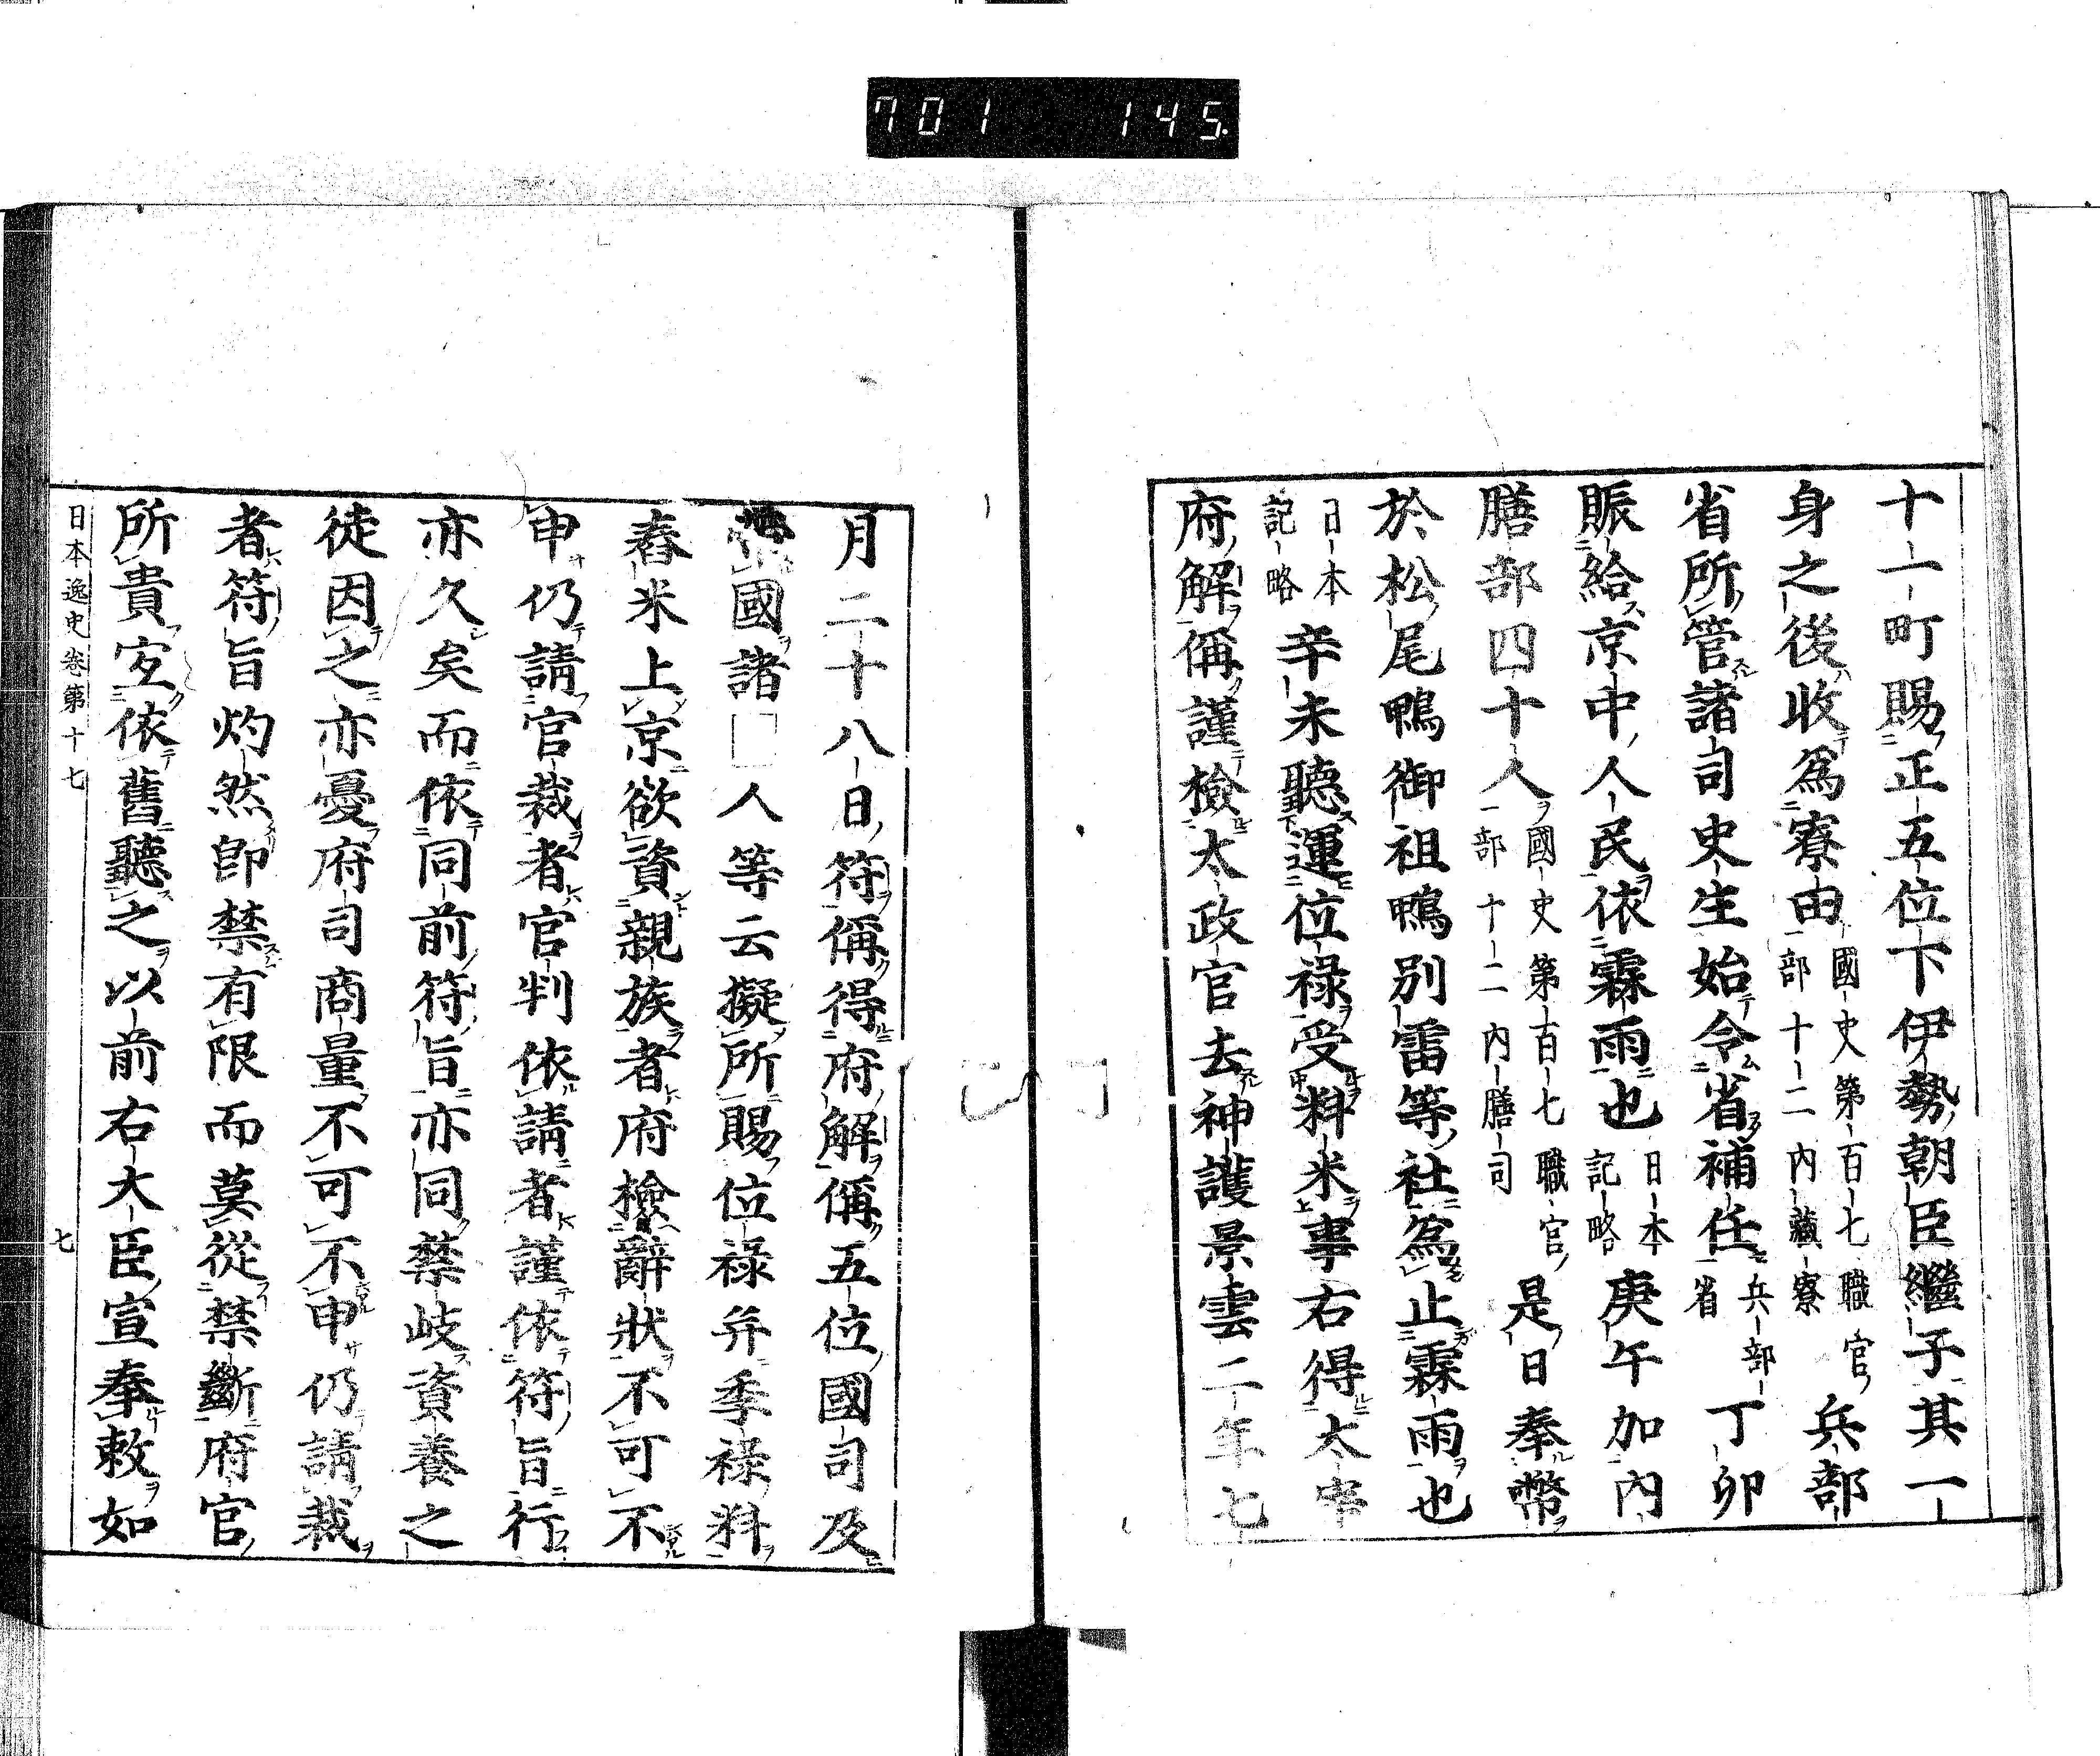 701 145
十一町賜正五位下伊勢朝臣繼子其一
身之後收爲寮由國史第百七職官部十二內藏寮兵部
省所管諸司史生始令省補任兵部省丁卯
賑給京中人民依霖雨也日本記略庚午加內
膳部四十人國史第百七職官部十二內膳司是日奉幣
於松尾鴨御祖鴨別雷等社爲止霖雨也
日本記略辛未聽運位祿受料米事右得太宰
府解偁謹檢太政官去神護景雲二年七
月二十八日符偁得府解偁五位國司及
國諸人等云擬所賜位祿并季祿料
舂米上京欲資親族者府檢辭狀不可不
申仍請官裁者官判依請者謹依符旨行
亦久矣而依同前符旨亦同禁歧資養之
徒因之亦憂府司商量不可不申仍請裁
者符旨灼然卽禁有限而莫從禁斷府官
所貴宜依舊聽之以前右大臣宣奉敕如
日本逸史卷第十七
七